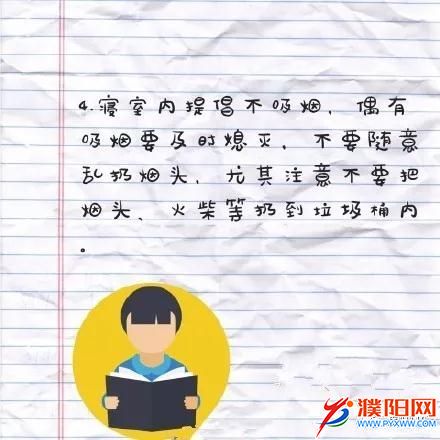 4.寝室内提倡不吸烟，偶有
吸烟要及时熄灭，不要随意
乱扔烟头，尤其注意不要把
烟头、火柴等扔到垃圾桶内
。
濮阳网
WWW.PYXWW.COM